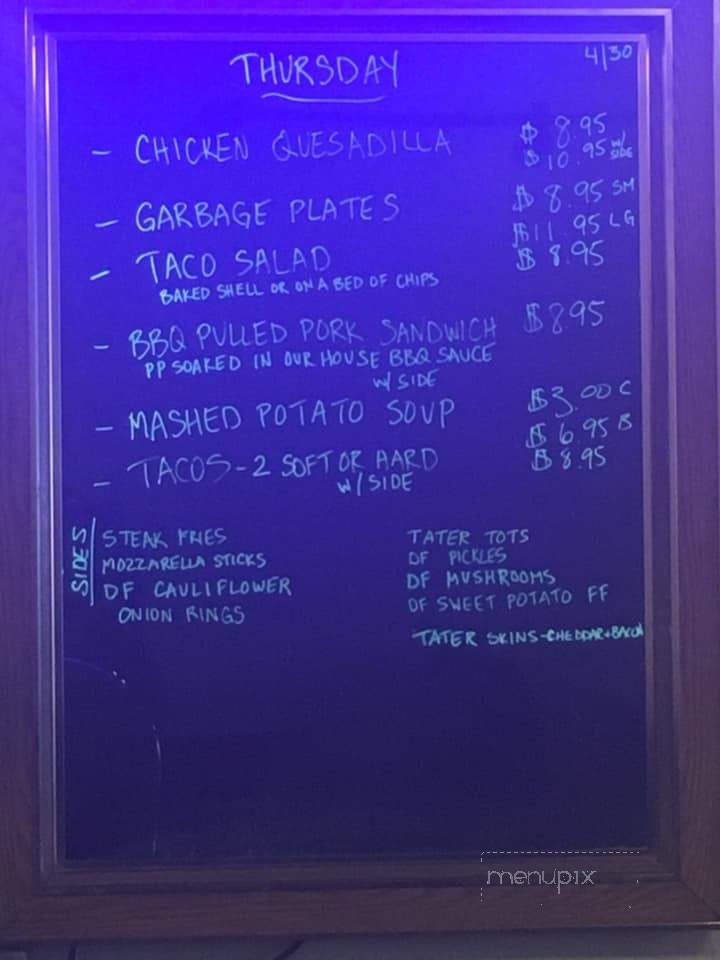 THURSDAY
4/30
- CHICKEN QUESADILLA $8.95
$10.95 w/ SIDE
- GARBAGE PLATES $8.95 SM
$11.95 LG
- TACO SALAD $8.95
BAKED SHELL OR ON A BED OF CHIPS
- BBQ PULLED PORK SANDWICH $8.95
PP SOAKED IN OUR HOUSE BBQ SAUCE
w/ SIDE
- MASHED POTATO SOUP $3.00 C
$6.95 B
- TACOS - 2 SOFT OR HARD $8.95
w/ SIDE
SIDES
STEAK FRIES
MOZZARELLA STICKS
DF CAULIFLOWER
ONION RINGS
TATER TOTS
DF PICKLES
DF MUSHROOMS
DF SWEET POTATO FF
TATER SKINS - CHEDDAR + BACON
menupix